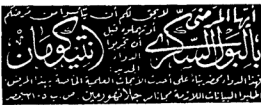 أيها المرضى
بالبول السكري
لا يحق لكم أن تيأسوا من مرضكم
أو تهملوه قبل
أن تجربوا
الدواء
أنتيكومان
فهذا الدواء محضر بناء على أحدث الأبحاث العلمية الخاصة بهذا المرض
اطلبوا البيانات اللازمة مجانا من جلانهورمين ص. ب ٢١٠٠ مصر